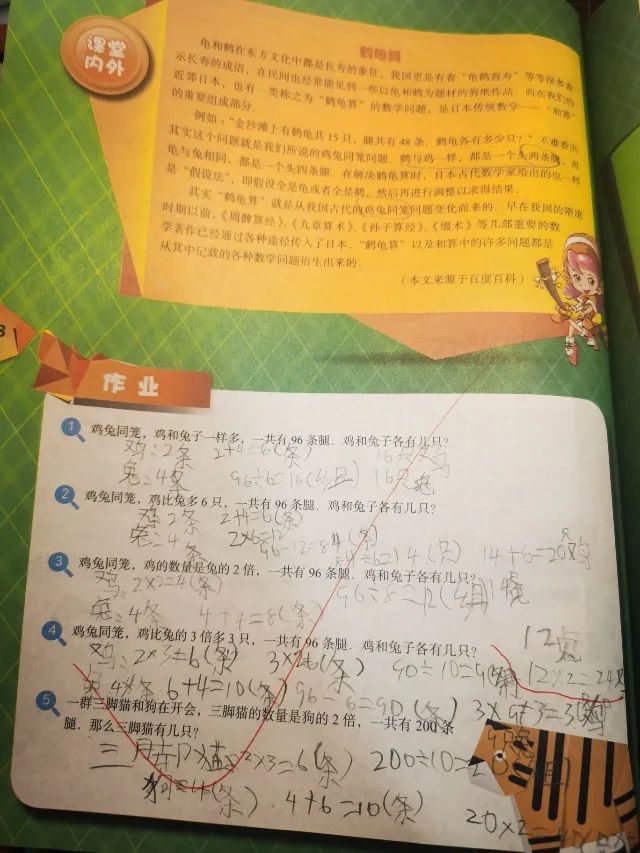 课堂
内外
鹤龟算
龟和鹤在东方文化中都是长寿的象征，我国更是有着“龟鹤遐寿”等等很多表
示长寿的成语，在民间也经常能见到一些以龟和鹤为题材的剪纸作品．而在我们的
近邻日本，也有一类称之为“鹤龟算”的数学问题，是日本传统数学——“和算”
的重要组成部分．
例如：“金沙滩上有鹤龟共15只，腿共有48条．鹤龟各有多少只？”不难看出
其实这个问题就是我们所说的鸡兔同笼问题．鹤与鸡一样，都是一个头两条腿，而
龟与兔相同，都是一个头四条腿．在解决鹤龟算时，日本古代数学家给出的也一样
是“假设法”，即假设全是龟或者全是鹤，然后再进行调整以求得结果．
其实“鹤龟算”就是从我国古代的鸡兔同笼问题变化而来的．早在我国的隋唐
时期以前，《周髀算经》、《九章算术》、《孙子算经》、《缀术》等几部重要的数
学著作已经通过各种途径传入了日本，“鹤龟算”以及和算中的许多问题都是
从其中记载的各种数学问题衍生出来的．
（本文来源于百度百科）
作业
1 鸡兔同笼，鸡和兔子一样多，一共有96条腿．鸡和兔子各有几只？
鸡：2条 2+4=6(条) 16只鸡
兔：4条 96÷6=16(组) 16只兔
2 鸡兔同笼，鸡比兔多6只，一共有96条腿．鸡和兔子各有几只？
鸡2条 2+4=6(条)
兔：4条 2×6=12 96-12=84(条) 84÷6=14(只) 14+6=20只鸡
3 鸡兔同笼，鸡的数量是兔的2倍，一共有96条腿．鸡和兔子各有几只？
鸡：2×2=4(条) 96÷8=12(组)
兔：4条 4+4=8(条)
12只兔
4 鸡兔同笼，鸡比兔的3倍多3只，一共有96条腿．鸡和兔子各有几只？
鸡：2×3=6(条) 3×2=6(条) 90÷10=9 12×2=24
4条 6+4=10(条) 96-6=90(条) 3×9+3=30
5 一群三脚猫和狗在开会，三脚猫的数量是狗的2倍，一共有200条
腿．那么三脚猫有几只？
三脚猫=2×3=6(条) 200÷10=20
狗=4(条) 4+6=10(条)
20×2=40